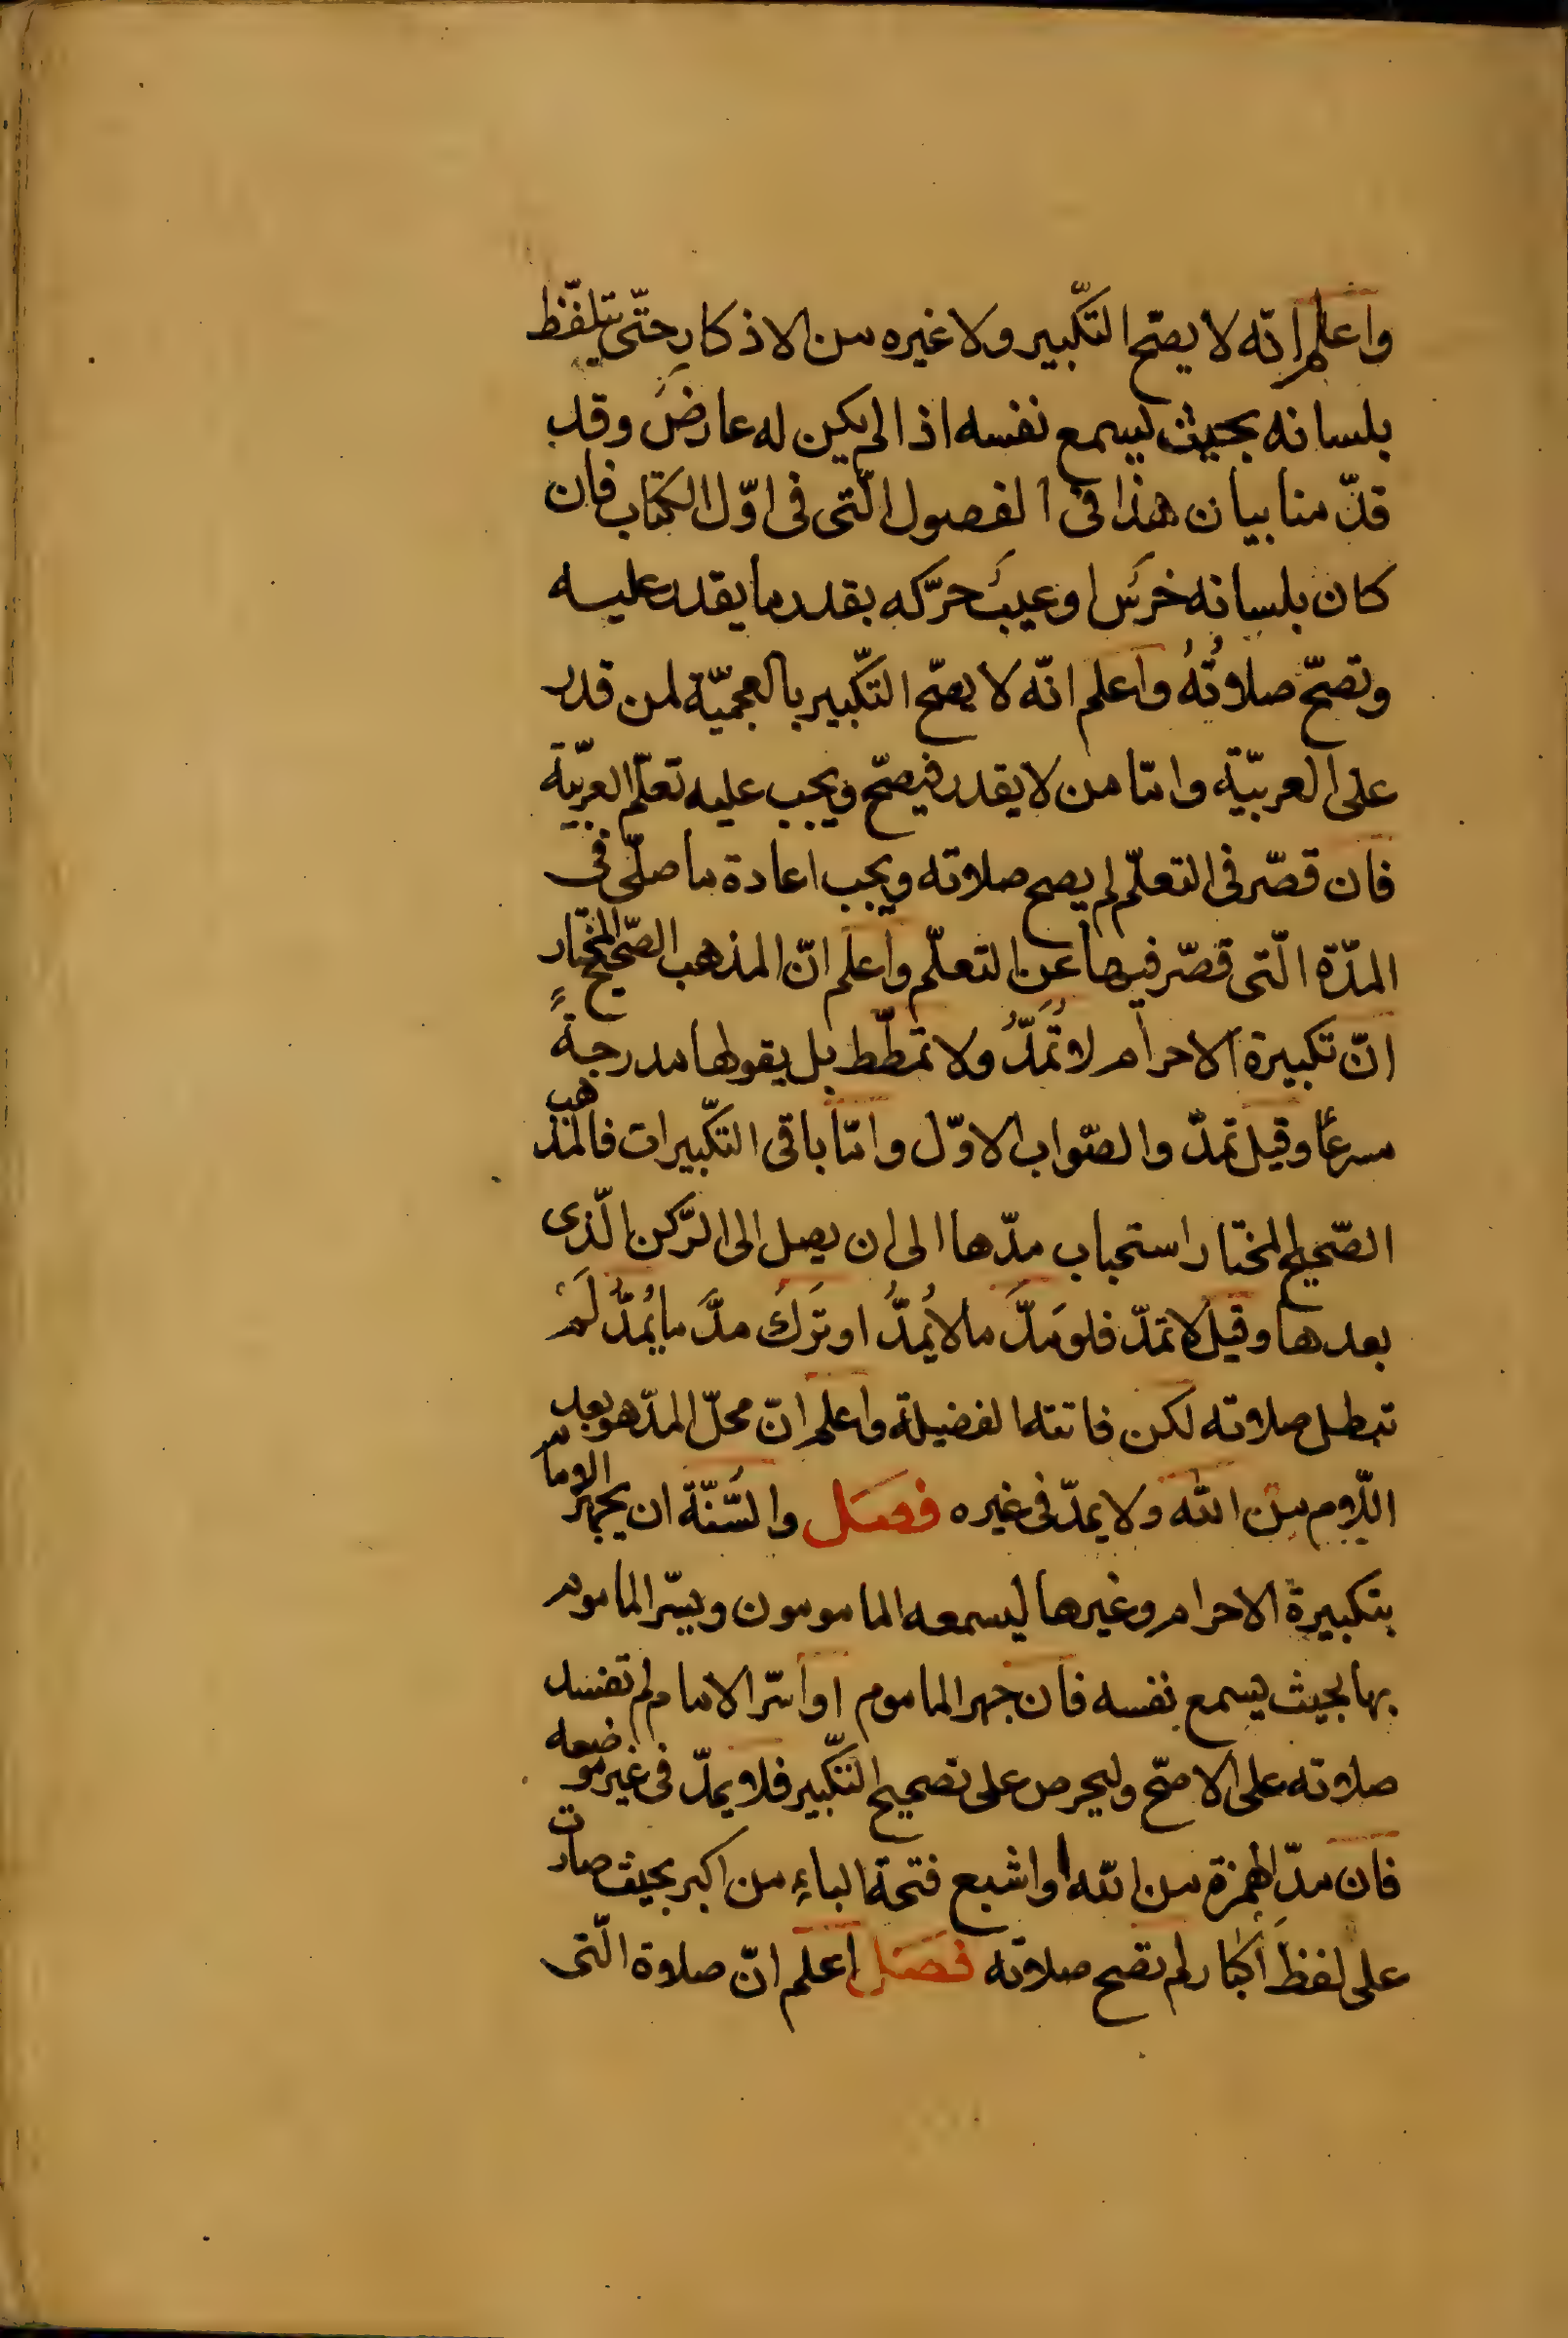 واعلم انّه لا يصحّ التّكبير ولا غيره من الاذكار حتّى يتلفّظ
بلسانه بحيث يسمع نفسه اذا لم يكن له عارض وقد
قدّمنا بيان هذا فى الفصول الّتى فى اوّل الكتاب فان
كان بلسانه خرَس اوعيبٌ حرّكه بقدر ما يقدر عليه
وتصحّ صلاوتُهُ واعلم انّه لا يصحّ التّكبير بالعجميّة لمن قدر
على العربيّة وامّا من لا يقدر فيصحّ ويجب عليه تعلّم العربيّة
فان قصّر فى التعلّم لم يصح صلاوته ويجب اعادة ما صلّى فى
المدّة الّتى قصّر فيها عن التعلّم واعلم انّ المذهب الصّحيح المختار
انّ تكبيرة الاحرام لا تُمَدُّ ولا تمطّط بل يقولها مدرجةً
مسرعًا وقيل تمدّ والصّواب الاوّل وامّا باقى التّكبيرات فالمذهب
الصّحيح المختار استحباب مدّها الى ان يصل الى الرّكن الّذى
بعدها وقيل لا تمدّ فلو مَدَّ ما لا يُمدُّ او تَرَكَ مدَّ ما يُمدُّ لَمْ
تبطل صلاوته لكن فاتته الفضيلة واعلم انّ محلّ المدّ هو بعد
اللّام من الله ولا يمدّ فى غيره فصل والسُّنّة ان يجهر الامام
بتكبيرة الاحرام وغيرها ليسمعه المامومون ويسّر الماموم
بها بحيث يسمع نفسه فان جهر الماموم او اسّر الامام لم تفسد
صلاوته على الاصحّ وليحرص على تصحيح التّكبير فلا يمدّ فى غير موضعه
فان مدّ الهمزة من الله او اشبع فتحة الباءِ من اكبر بحيث صارت
على لفظ اَكبار لم تصح صلاوته فصل اعلم انّ صلاوة الّتى